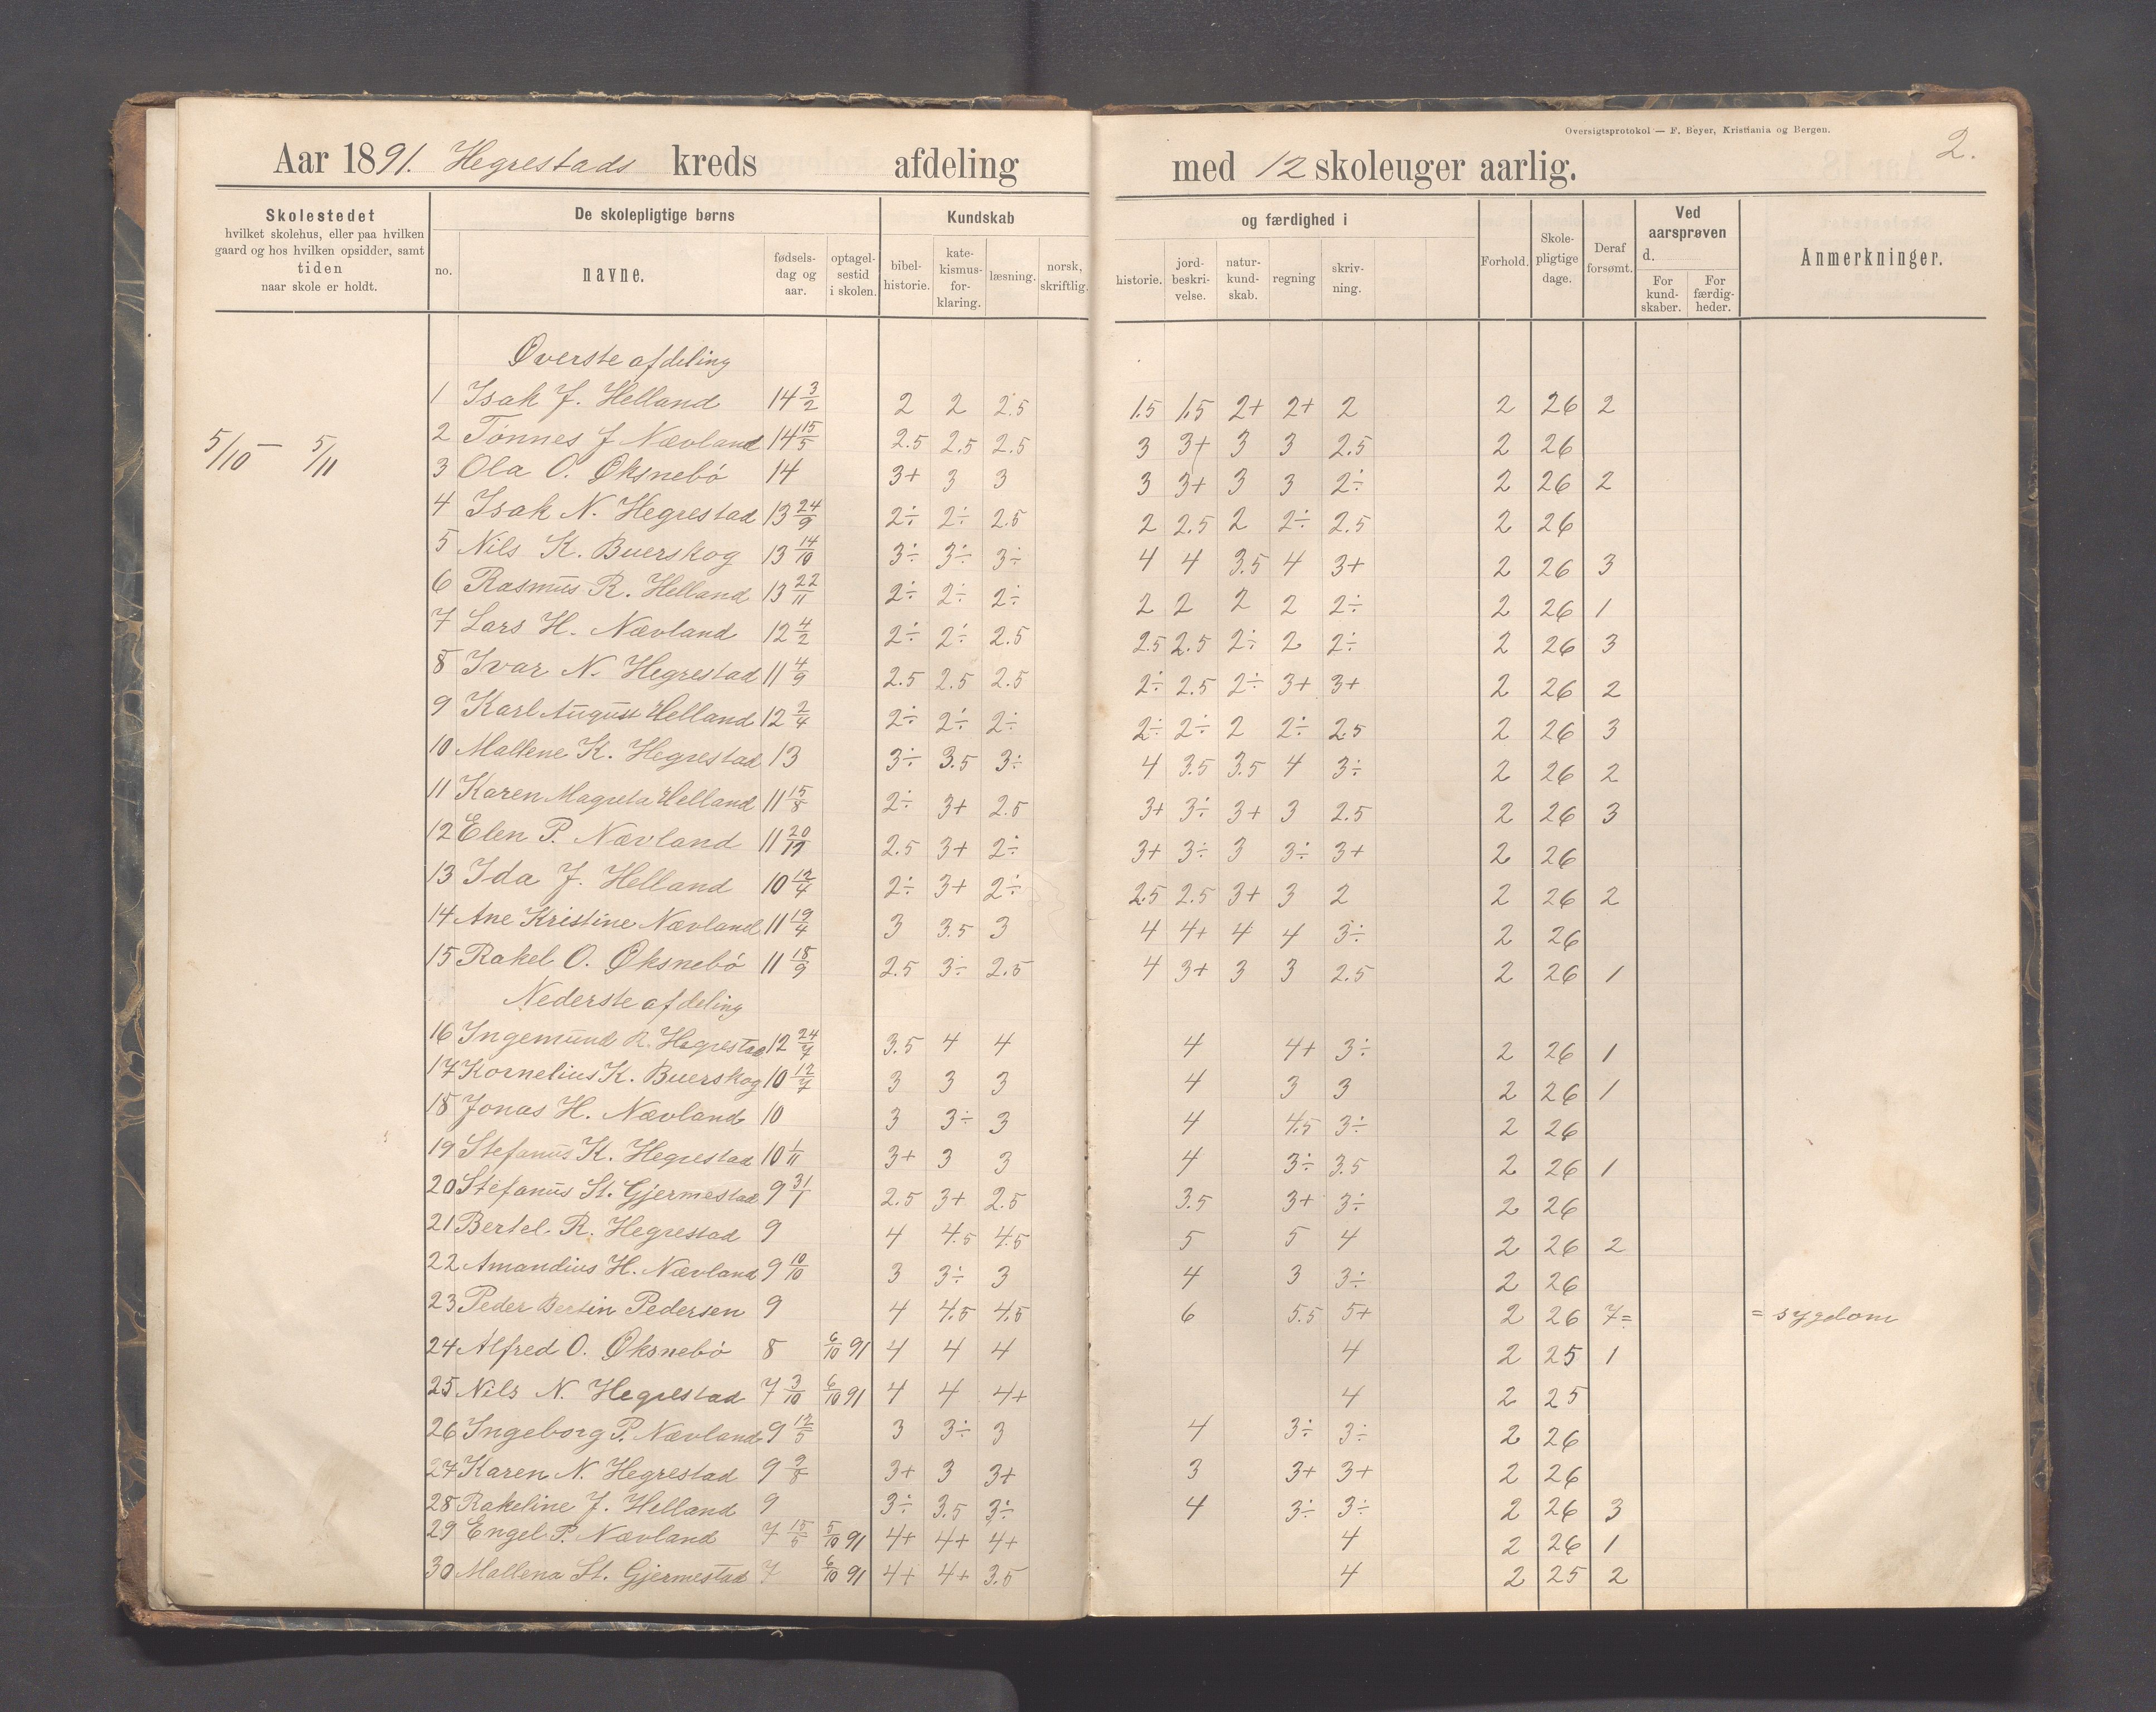 Oversigtsprotokol — F. Beyer, Kristiania og Bergen.
2.
Aar 1891. Hegrestads kreds afdeling med 12 skoleuger aarlig.
Skolestedet hvilket skolehus, eller paa hvilken gaard og hos hvilken opsidder, samt tiden naar skole er holdt.
De skolepligtige børns
no. navne. fødsels-dag og aar. optagel-sestid i skolen.
Kundskab og færdighed i
bibel-historie. kate-kismus-for-klaring. læsning. norsk, skriftlig. historie. jord-beskri-velse. natur-kund-skab. regning skriv-ning.
Forhold. Skole-pligtige dage. Deraf forsømt.
Ved aarsprøven d.
For kund-skaber. For færdig-heder.
Anmerkninger.
Øverste afdeling
1 Isak J. Helland 14 3/2 2 2 2.5 1.5 1.5 2+ 2+ 2 2 26 2
5/10 — 5/11
2 Tønnes J Nævland 14 15/5 2.5 2.5 2.5 3 3+ 3 3 2.5 2 26
3 Ola O. Øksnebø 14 3+ 3 3 3 3+ 3 3 2÷ 2 26 2
4 Isak N. Hegrestad 13 24/9 2÷ 2÷ 2.5 2 2.5 2 2÷ 2.5 2 26
5 Nils K. Buerskog 13 14/10 3÷ 3÷ 3÷ 4 4 3.5 4 3+ 2 26 3
6 Rasmus R. Helland 13 22/11 2÷ 2÷ 2÷ 2 2 2 2 2÷ 2 26 1
7 Lars H. Nævland 12 4/2 2÷ 2÷ 2.5 2.5 2.5 2÷ 2 2÷ 2 26 3
8 Ivar N. Hegrestad 11 4/9 2.5 2.5 2.5 2÷ 2.5 2÷ 3+ 3+ 2 26 2
9 Karl August Helland 12 2/4 2÷ 2÷ 2÷ 2÷ 2÷ 2 2÷ 2.5 2 26 3
10 Mallene K. Hegrestad 13 3÷ 3.5 3÷ 4 3.5 3.5 4 3÷ 2 26 2
11 Karen Magreta Helland 11 15/8 2÷ 3+ 2.5 3+ 3÷ 3+ 3 2.5 2 26 3
12 Elen P. Nævland 11 2.5 3+ 2÷ 3+ 3÷ 3 3÷ 3+ 2 26
13 Ida J. Helland 10 12/4 2÷ 3+ 2÷ 2.5 2.5 3+ 3 2 2 26 2
14 Ane Kristine Nævland 11 19/4 3 3.5 3 4 4+ 4 4 3÷ 2 26
15 Rakel O. Øksnebø 11 18/9 2.5 3÷ 2.5 4 3+ 3 3 2.5 2 26 1
Nederste afdeling
16 Ingemund R. Hegrestad 12 24/7 3.5 4 4 4 4+ 3÷ 2 26 1
17 Kornelius K. Buerskog 10 12/7 3 3 3 4 3 3 2 26 1
18 Jonas H. Nævland 10 3 3÷ 3 4 4.5 3÷ 2 26
19 Stefanus K. Hegrestad 10 1/11 3+ 3 3 4 3÷ 3.5 2 26 1
20 Stefanus St. Gjermestad 9 31/1 2.5 3+ 2.5 3.5 3+ 3÷ 2 26
21 Bertel R. Hegrestad 9 4 4.5 4.5 5 5 4 2 26 2
22 Amandius H. Nævland 9 10/10 3 3÷ 3 4 3 3÷ 2 26
23 Peder Bertin Pedersen 9 4 4.5 4.5 6 5.5 5+ 2 26 7= = sygdom
24 Alfred O. Øksnebø 8 6/10 91 4 4 4 4 2 25 1
25 Nils N. Hegrestad 7 3/10 6/10 91 4 4 4+ 4 2 25
26 Ingeborg P. Nævland 9 12/5 3 3÷ 3 4 3÷ 3÷ 2 26
27 Karen N. Hegrestad 9 9/8 3+ 3 3+ 3 3+ 3+ 2 26
28 Rakeline J. Helland 9 3÷ 3.5 3÷ 4 3÷ 3÷ 2 26 3
29 Engel P. Nævland 7 15/5 5/10 91 4+ 4+ 4+ 4 2 26 1
30 Mallena St. Gjermestad 7 6/10 91 4+ 4+ 3.5 4 2 25 2